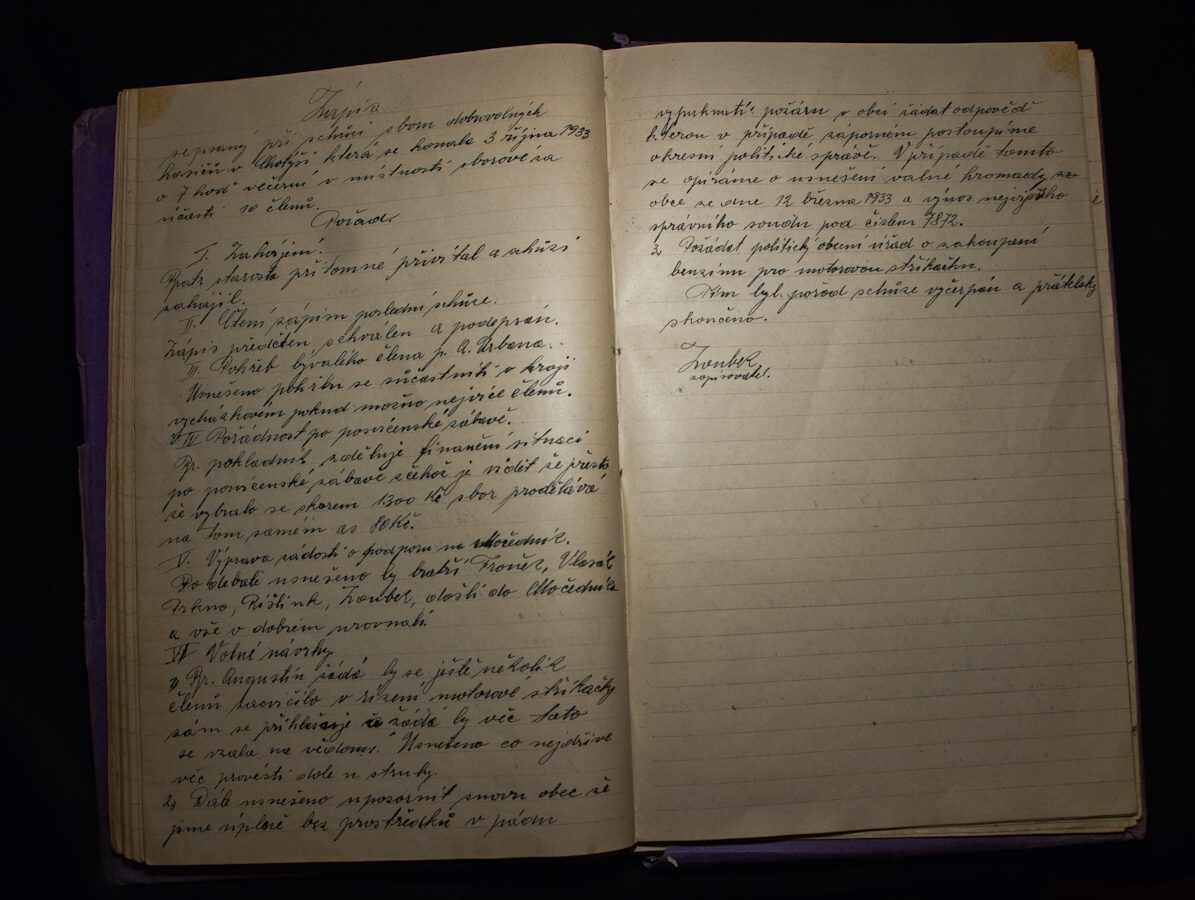 Zápis
sepsaný při schůzi sboru dobrovolných
hasičů v Chotýši která se konala 3 října 1933
o 7 hod večerní v místnosti sborové za
účasti 10 členů.
Pořad.
I. Zahájení.
Bratr starosta přítomné přivítal a schůzi
zahájil.
II. Čtení zápisu poslední schůze.
Zápis předčten schválen a podepsán.
III. Pohřeb bývalého člena p. A. Urbana.
Usnešeno pohřbu se súčastniti v kroji
vycházkovém pokud možno nejvíce členů.
IV Pořádnost po posvícenské zábavě.
Br. pokladník sděluje finanční situaci
po posvícenské zábavě z čehož je vidět že přesto
že vybralo se skorem 1300 Kč sbor prodělává
na tom samém as 80 Kč.
V. Výprava žádosti o podporu na Močedník.
Po debatě usnešeno by bratří Froněk, Vlasák
Prkno, Rištink, Zoubek, došli do Močedníka
a vše v dobrém urovnali.
VI Volné návrhy.
1) Br. Augustin žádá by se ještě několik
členů zacvičilo v řízení motorové stříkačky
sám se přihlašuje a žádá by věc tato
se vzala na vědomí. Usnešeno co nejdříve
věc provésti dole u struhy.
2) Dále usnešeno upozornit znovu obec že
jsme úplně bez prostředků v
vypuknutí požáru v obci žádat odpověď
kterou v případě zápornem postoupíme
okresní politické správě. V případě tomto
se opíráme o usnešení valné hromady
obce ze dne 12 března 1933 a výnos nejvyššího
správního soudu pod číslem 7872.
3) Požádat politický obecní úřad o zakoupení
benzinu pro motorovou stříkačku.
Tím byl pořad schůze vyčerpán a přátelsky
skončeno.
Zoubek
zapisovatel.